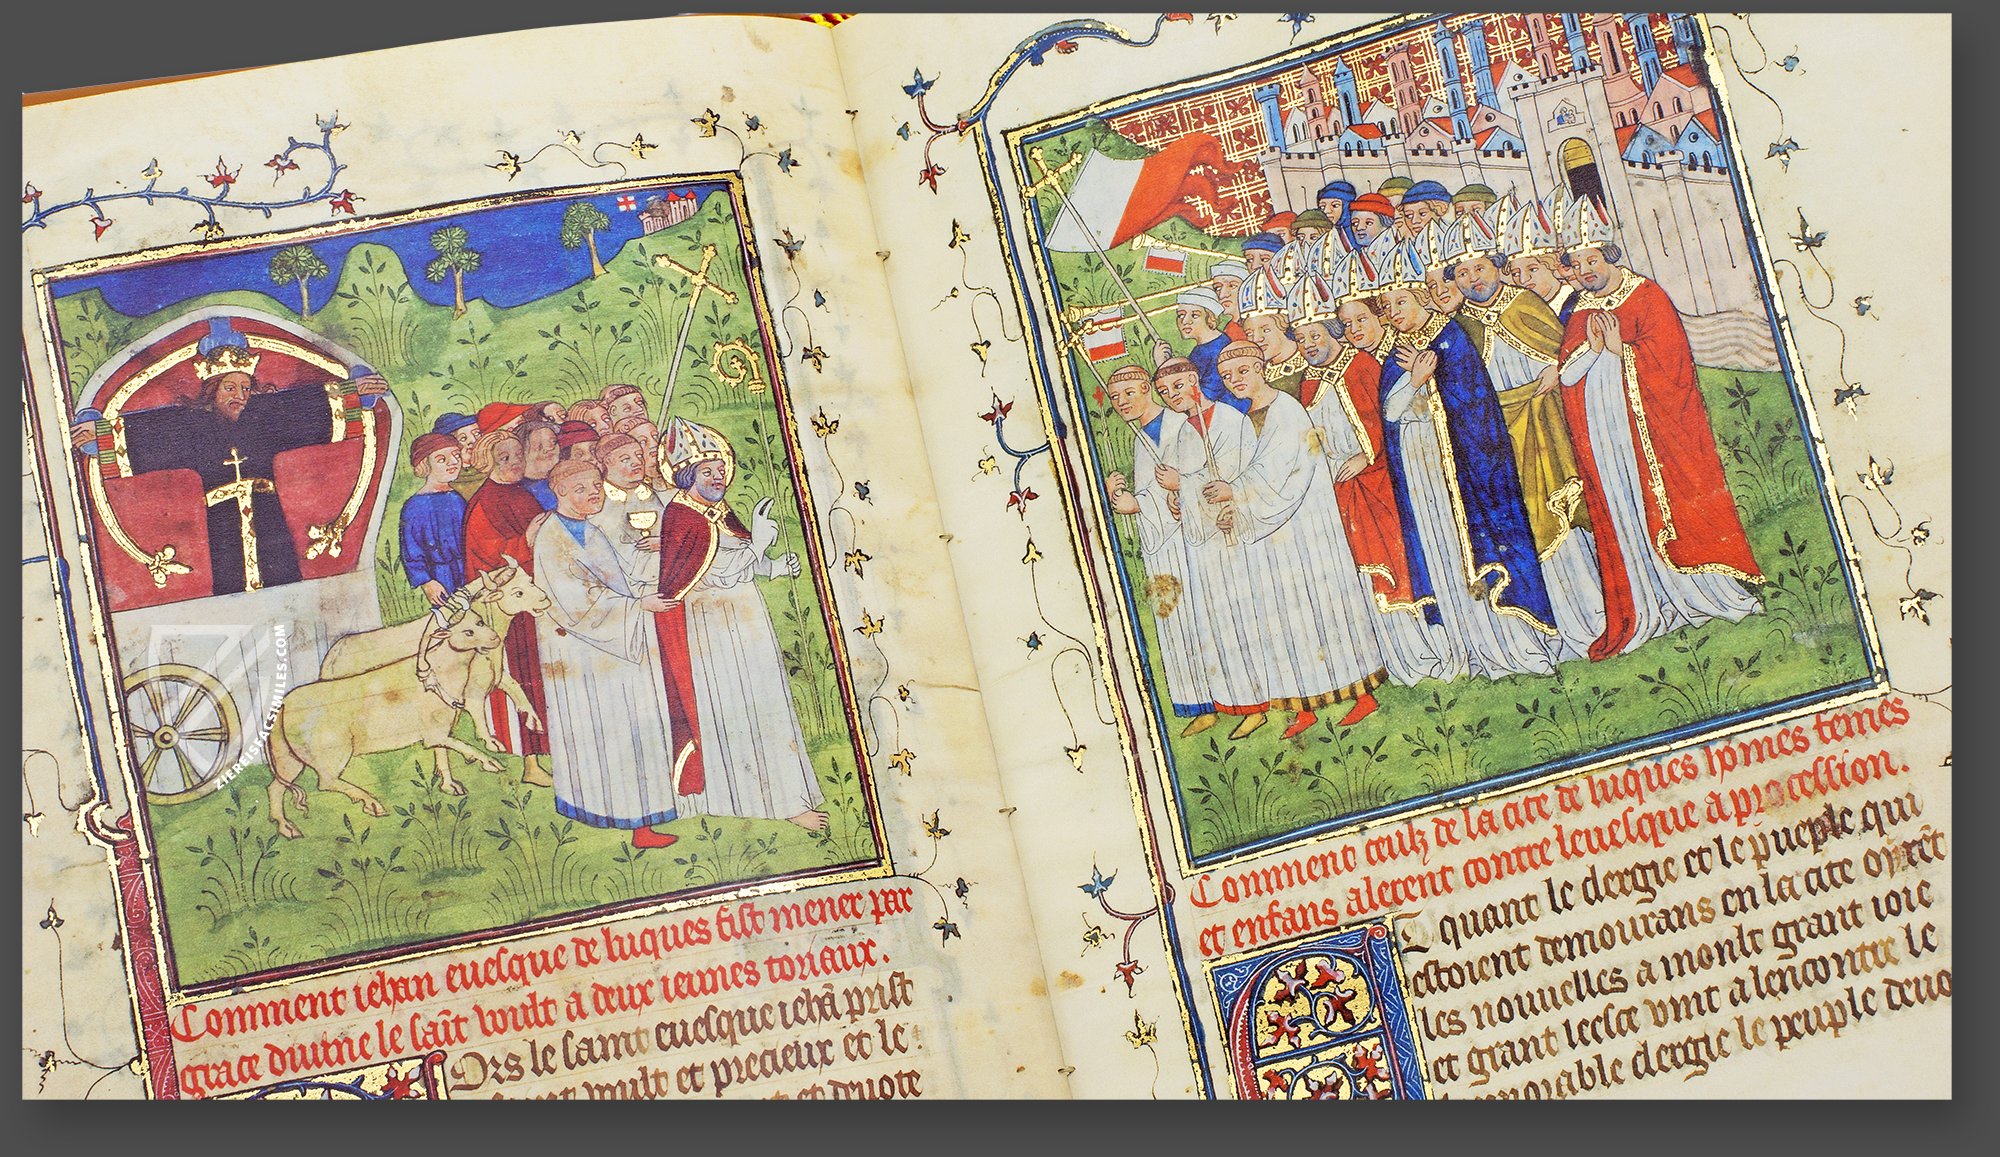 Comment iehan euesque de luques fist mener par
grace diuine le saīt voult a deux ieunes toriaux.
Ors le saint euesque iehā prist
voult et precieux et le
et deuote
Comment ceulz de la cite de luques hōmes femes
et enfans alerent contre leuesque a procession.
quant le clergie et le pueple qui
estoient demourans en la cite oyrēt
les nouuelles a moult grant ioie
et grant leesce vint alencontre le
honorable clergie le peuple deuo
ZIEREISFACSIMILES.COM